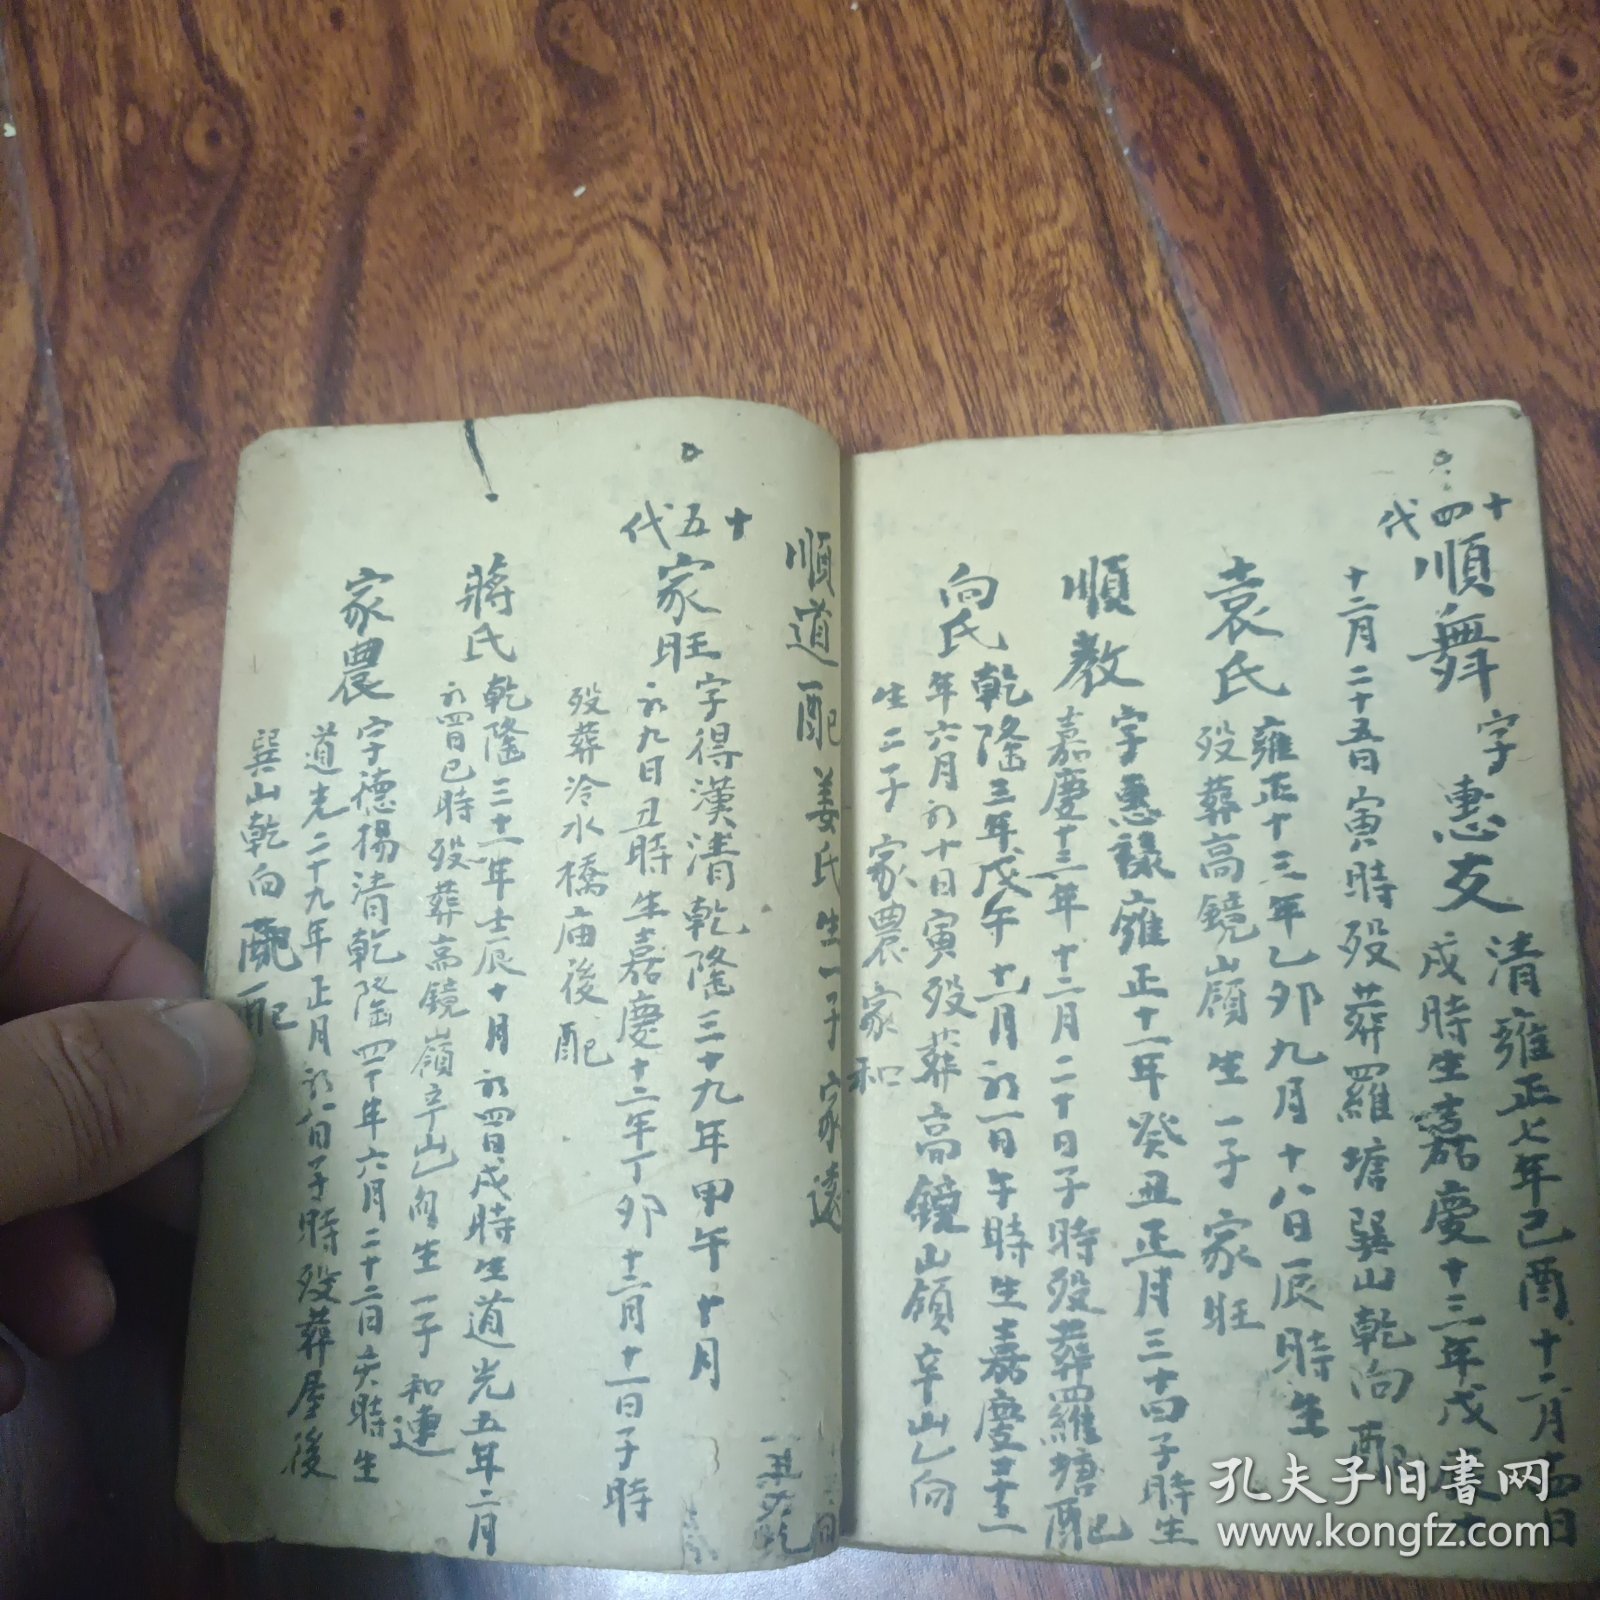 十四代
順舞字惠友清雍正七年己酉十二月
戌時生嘉慶十三年戊辰
十二月二十五日寅時殁葬羅塘巽山乾向配
袁氏雍正十三年乙卯九月十八日辰時生
殁葬高鏡山嶺生一子家旺
順教字惠祿雍正十一年癸丑正月三十四子時生
嘉慶十三年十二月二十日子時殁葬羅塘配
向氏乾隆三年戊午十一月初一日午時生嘉慶
年六月初十日寅殁葬高鏡山嶺辛山乙向
生二子家農家和
順道配姜氏生一子家遠
十五代
家旺字得漢清乾隆三十九年甲午十月
初九日丑時生嘉慶十二年丁卯十二月十一日子時
殁葬冷水橋庙後配
蔣氏乾隆三十七年壬辰十月初四日戌時生道光五年二月
初四日巳時殁葬高鏡嶺辛山乙向生一子和連
家農字德揚清乾隆四十年六月二十二日亥時生
道光二十九年正月初八日子時殁葬屋後
巽山乾向配
孔夫子旧書网
www.kongfz.com